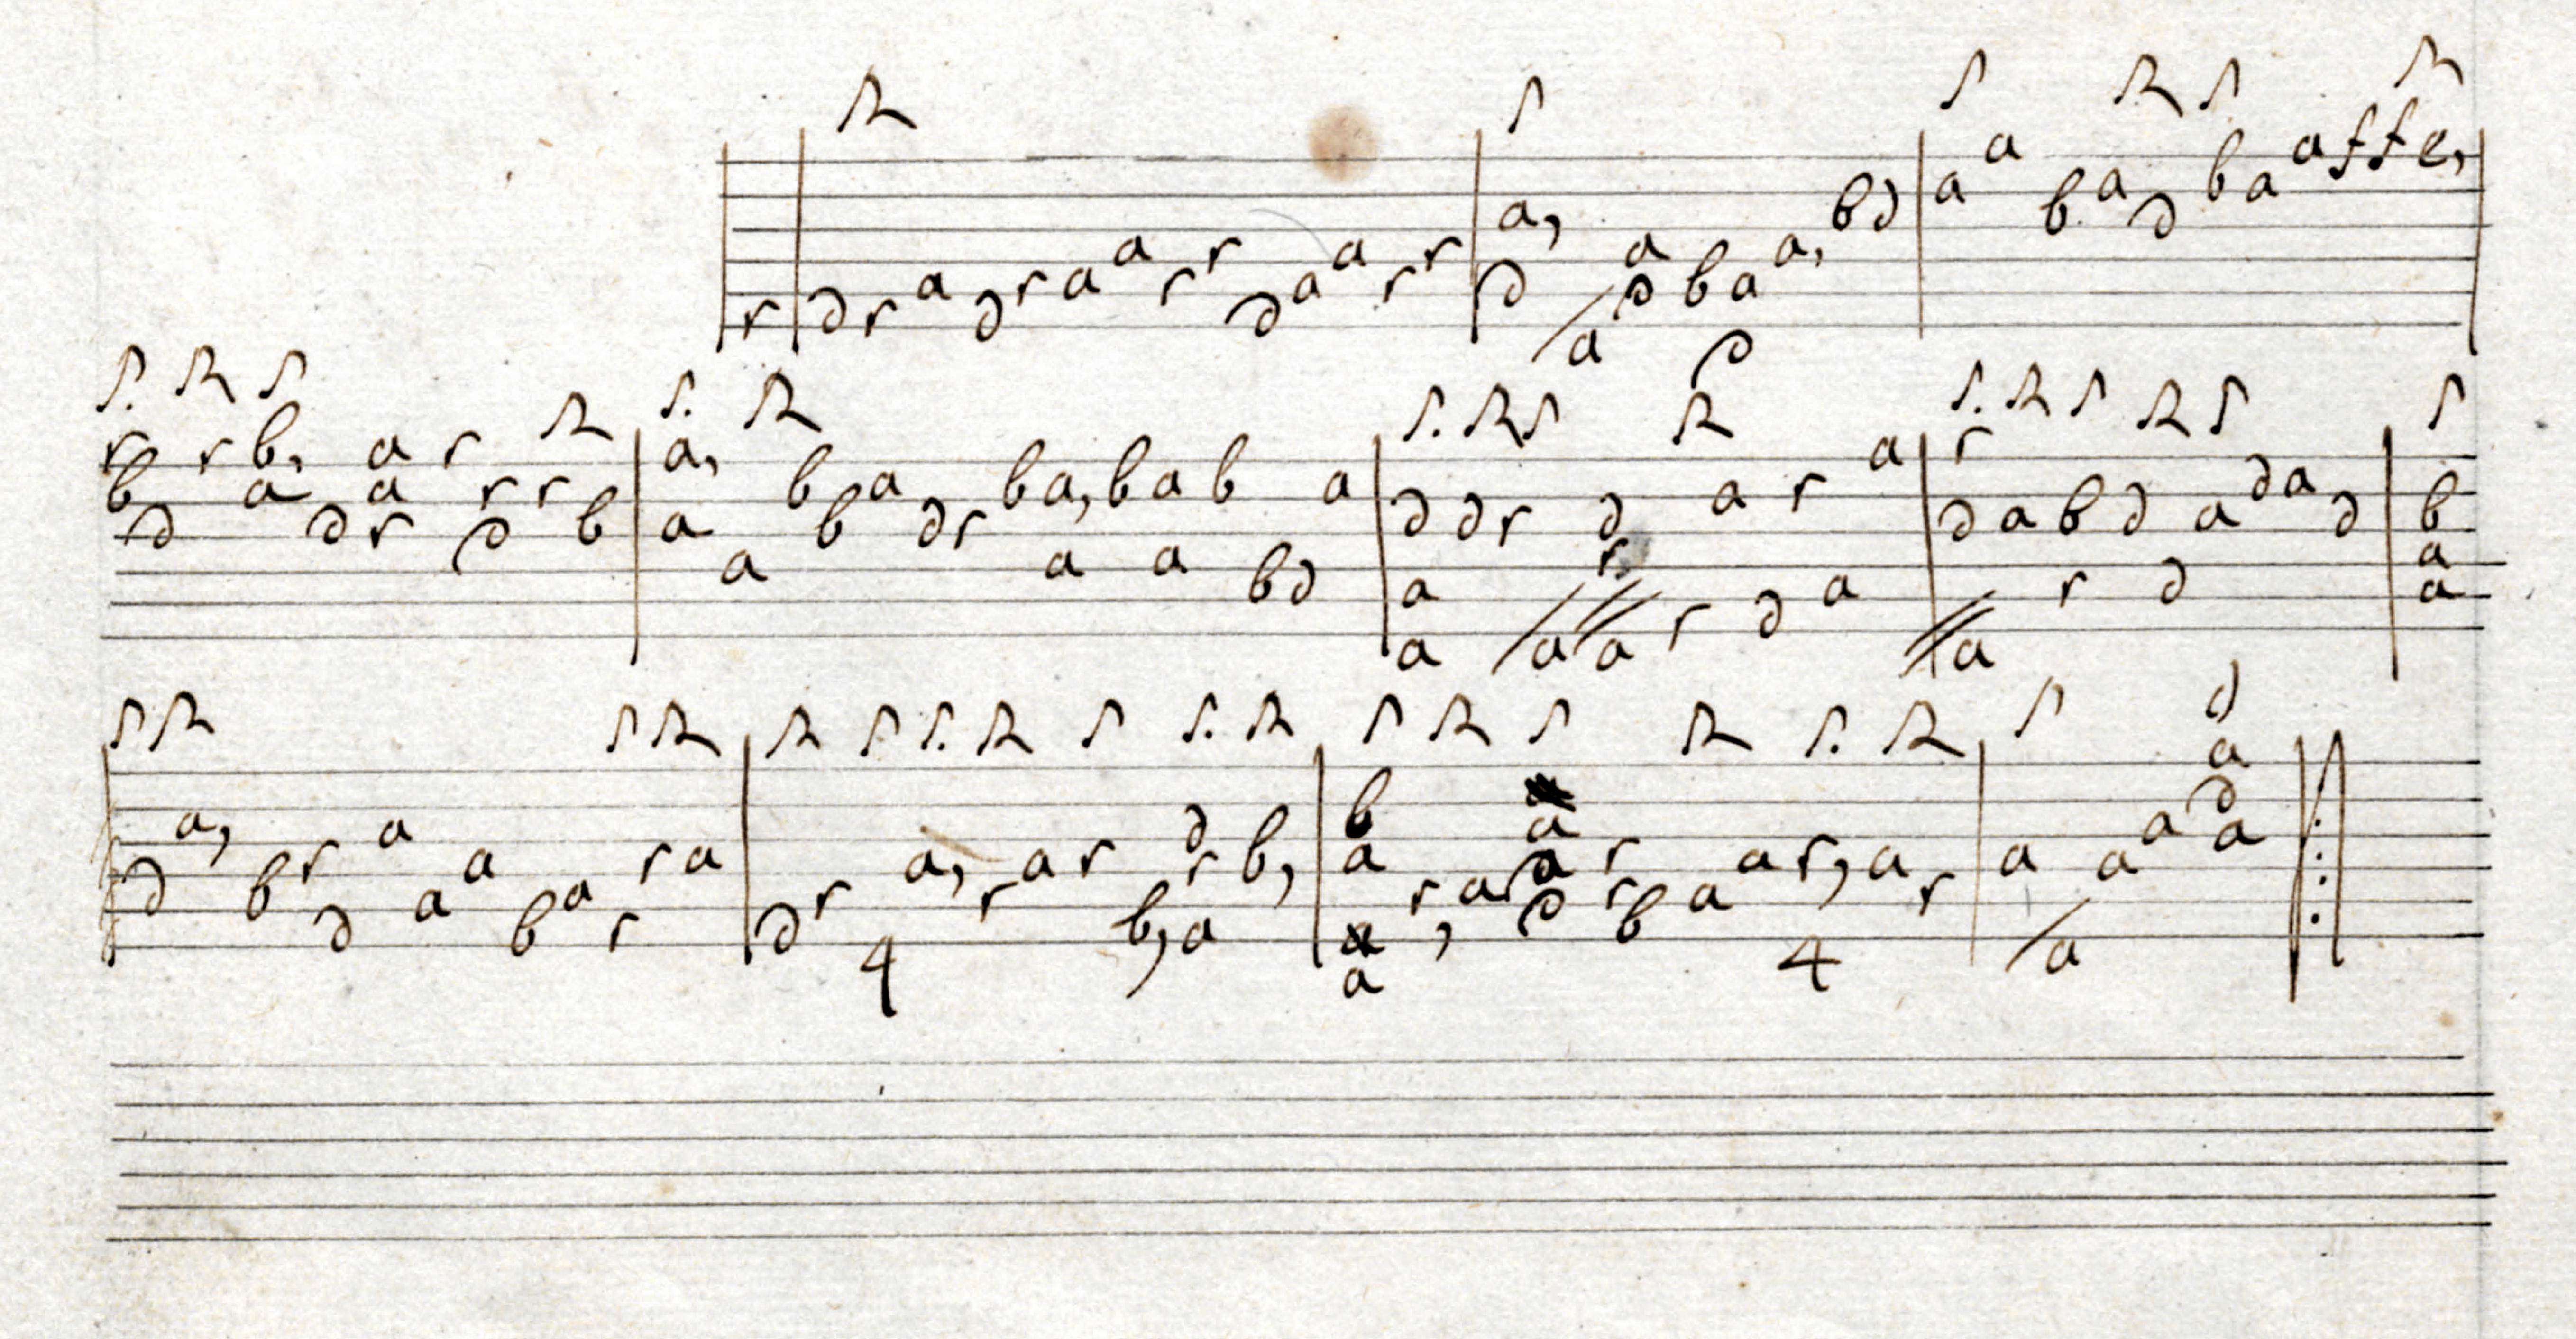 r | d r a d r a a r r d a a r r | a, d /a a d b a d a, b d | a a b a d b a a f f e,
r b d r b, a d a a r r d r r b | a, a a b b a d r b a a, b a a b b d a | d a a d r /a d r //a r d a a r a | r d //a a b r d d a d a d | b a a
d a, b r d a a a b a r r a | d r 4 a, r a r b, d r a b, | b a a r, a a a d r r b a a r, 4 a r | a /a a a a d a